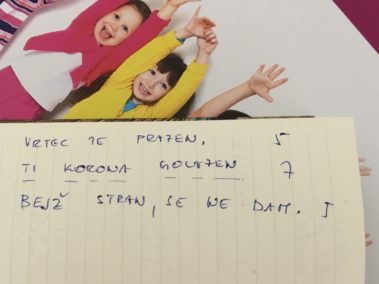 VRTEC JE PRAZEN, 5
TI KORONA GOLAZEN 7
BEJŽ STRAN, SE NE DAM. 5